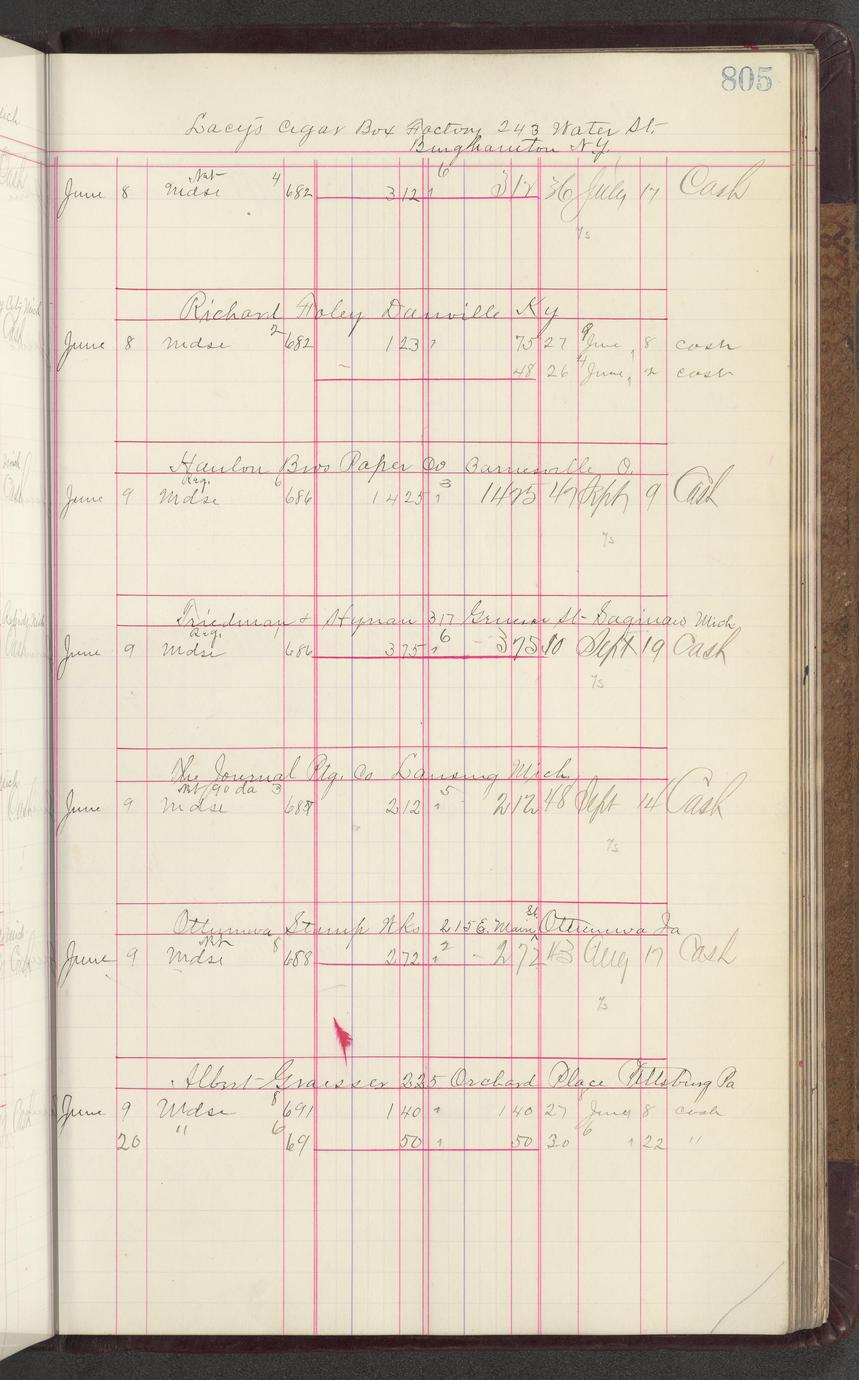 805
Lacy's Cigar Box Factory 243 Water St.
Binghamton N.Y.
June 8 Net Mdse 4 682 312 " 6 312 36 July 17 Cash
7/s
Richard Foley Danville Ky
June 8 Mdse 2 682 123 " 75 27 9 June 8 cash
48 26 4 June 2 cash
Hanlon Bros Paper Co Barnesville O.
June 9 Reg. Mdse 6 686 1425 " 3 1425 47 Sept 9 Cash
7/s
Friedman & Hynan 317 Genesee St- Saginaw Mich
June 9 Reg. Mdse 1 686 375 " 6 375 10 Sept 19 Cash
7/s
The Journal Ptg. Co Lansing Mich.
June 9 Net 90 da Mdse 3 687 212 " 5 212 48 Sept 14 Cash
7/s
Ottumwa Stamp Wks 215 E. Main St. Ottumwa Ia
June 9 Net Mdse 8 688 272 " 2 272 43 Aug 17 Cash
7/s
Albert Graesser 225 Orchard Place Pittsburg Pa
June 9 Mdse 8 691 140 " 140 27 June 8 cash
20 " 6 69 50 " 50 30 6 " 22 "